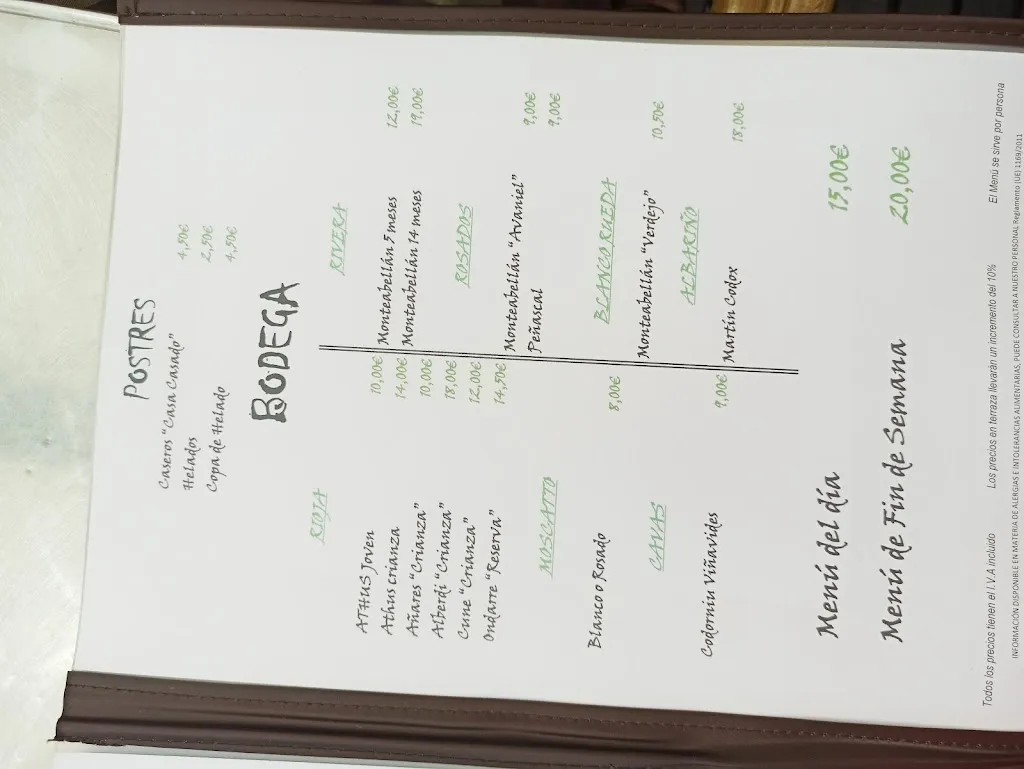 POSTRES
Caseros "Casa Casado" 4,50€
Helados 2,50€
Copa de Helado 4,50€
BODEGA
RIOJA
ATHUS Joven 10,00€
Athus crianza 14,00€
Añares "Crianza" 10,00€
Alberdi "Crianza" 18,00€
Cune "Crianza" 12,00€
Ondarre "Reserva" 14,50€
MOSCATTO
Blanco o Rosado 8,00€
CAVAS
Codorniu Viñavides 9,00€
RIVERA
Monteabellán 5 meses 12,00€
Monteabellán 14 meses 19,00€
ROSADOS
Monteabellán "Avaniel" 9,00€
Peñascal 9,00€
BLANCO RUEDA
Monteabellán "Verdejo" 10,50€
ALBARIÑO
Martín Codox 18,00€
Menú del día 15,00€
Menú de Fin de Semana 20,00€
Todos los precios tienen el I.V.A incluido Los precios en terraza llevarán un incremento del 10% El Menú se sirve por persona
INFORMACIÓN DISPONIBLE EN MATERIA DE ALERGIAS E INTOLERANCIAS ALIMENTARIAS, PUEDE CONSULTAR A NUESTRO PERSONAL Reglamento (UE) 1169/2011